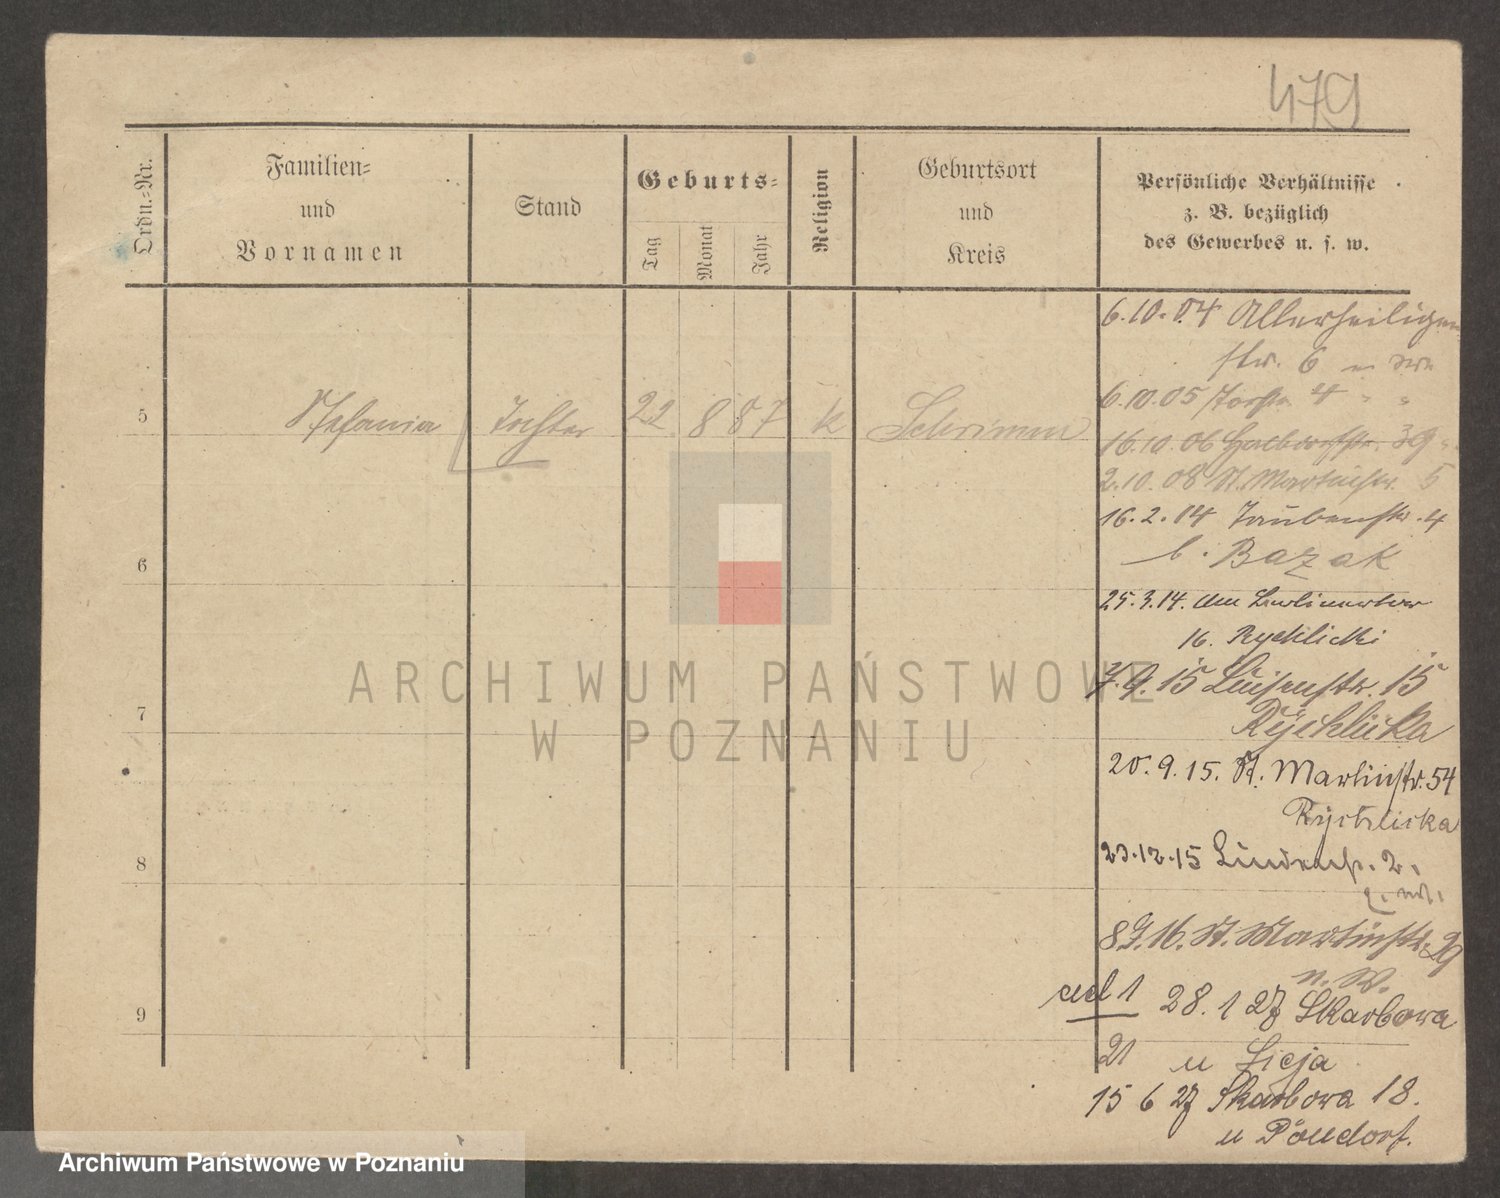 479
Ordn.-Nr.
Familien-
und
Vornamen
Stand
Geburts-
Tag
Monat
Jahr
Religion
Geburtsort
und
Kreis
Persönliche Verhältnisse
z. B. bezüglich
des Gewerbes u. s. w.
5
Stefania
Tochter
22
8
87
k
Schrimm
6
7
8
9
6.10.04 Allerheiligen
str. 6
6.10.05 4
16.10.06 39
2.10.08 St. Martinstr. 5
16.2.14 Taubenstr. 4
b. Bazak
25.3.14. Am Berlinertor
16. Rychlicki
7.9.15 Luisenstr. 15
Rychlicka
20.9.15. St. Martinstr. 54
Rychlicka
23.12.15 Lindenstr. 2.
8.7.16. St. Martinstr. 29
n. W.
ad 1 28. 1 27 Skarbowa
21 u Licja
15 6 27 Skarbowa 18.
u
ARCHIWUM PAŃSTWOWE
W POZNANIU
Archiwum Państwowe w Poznaniu